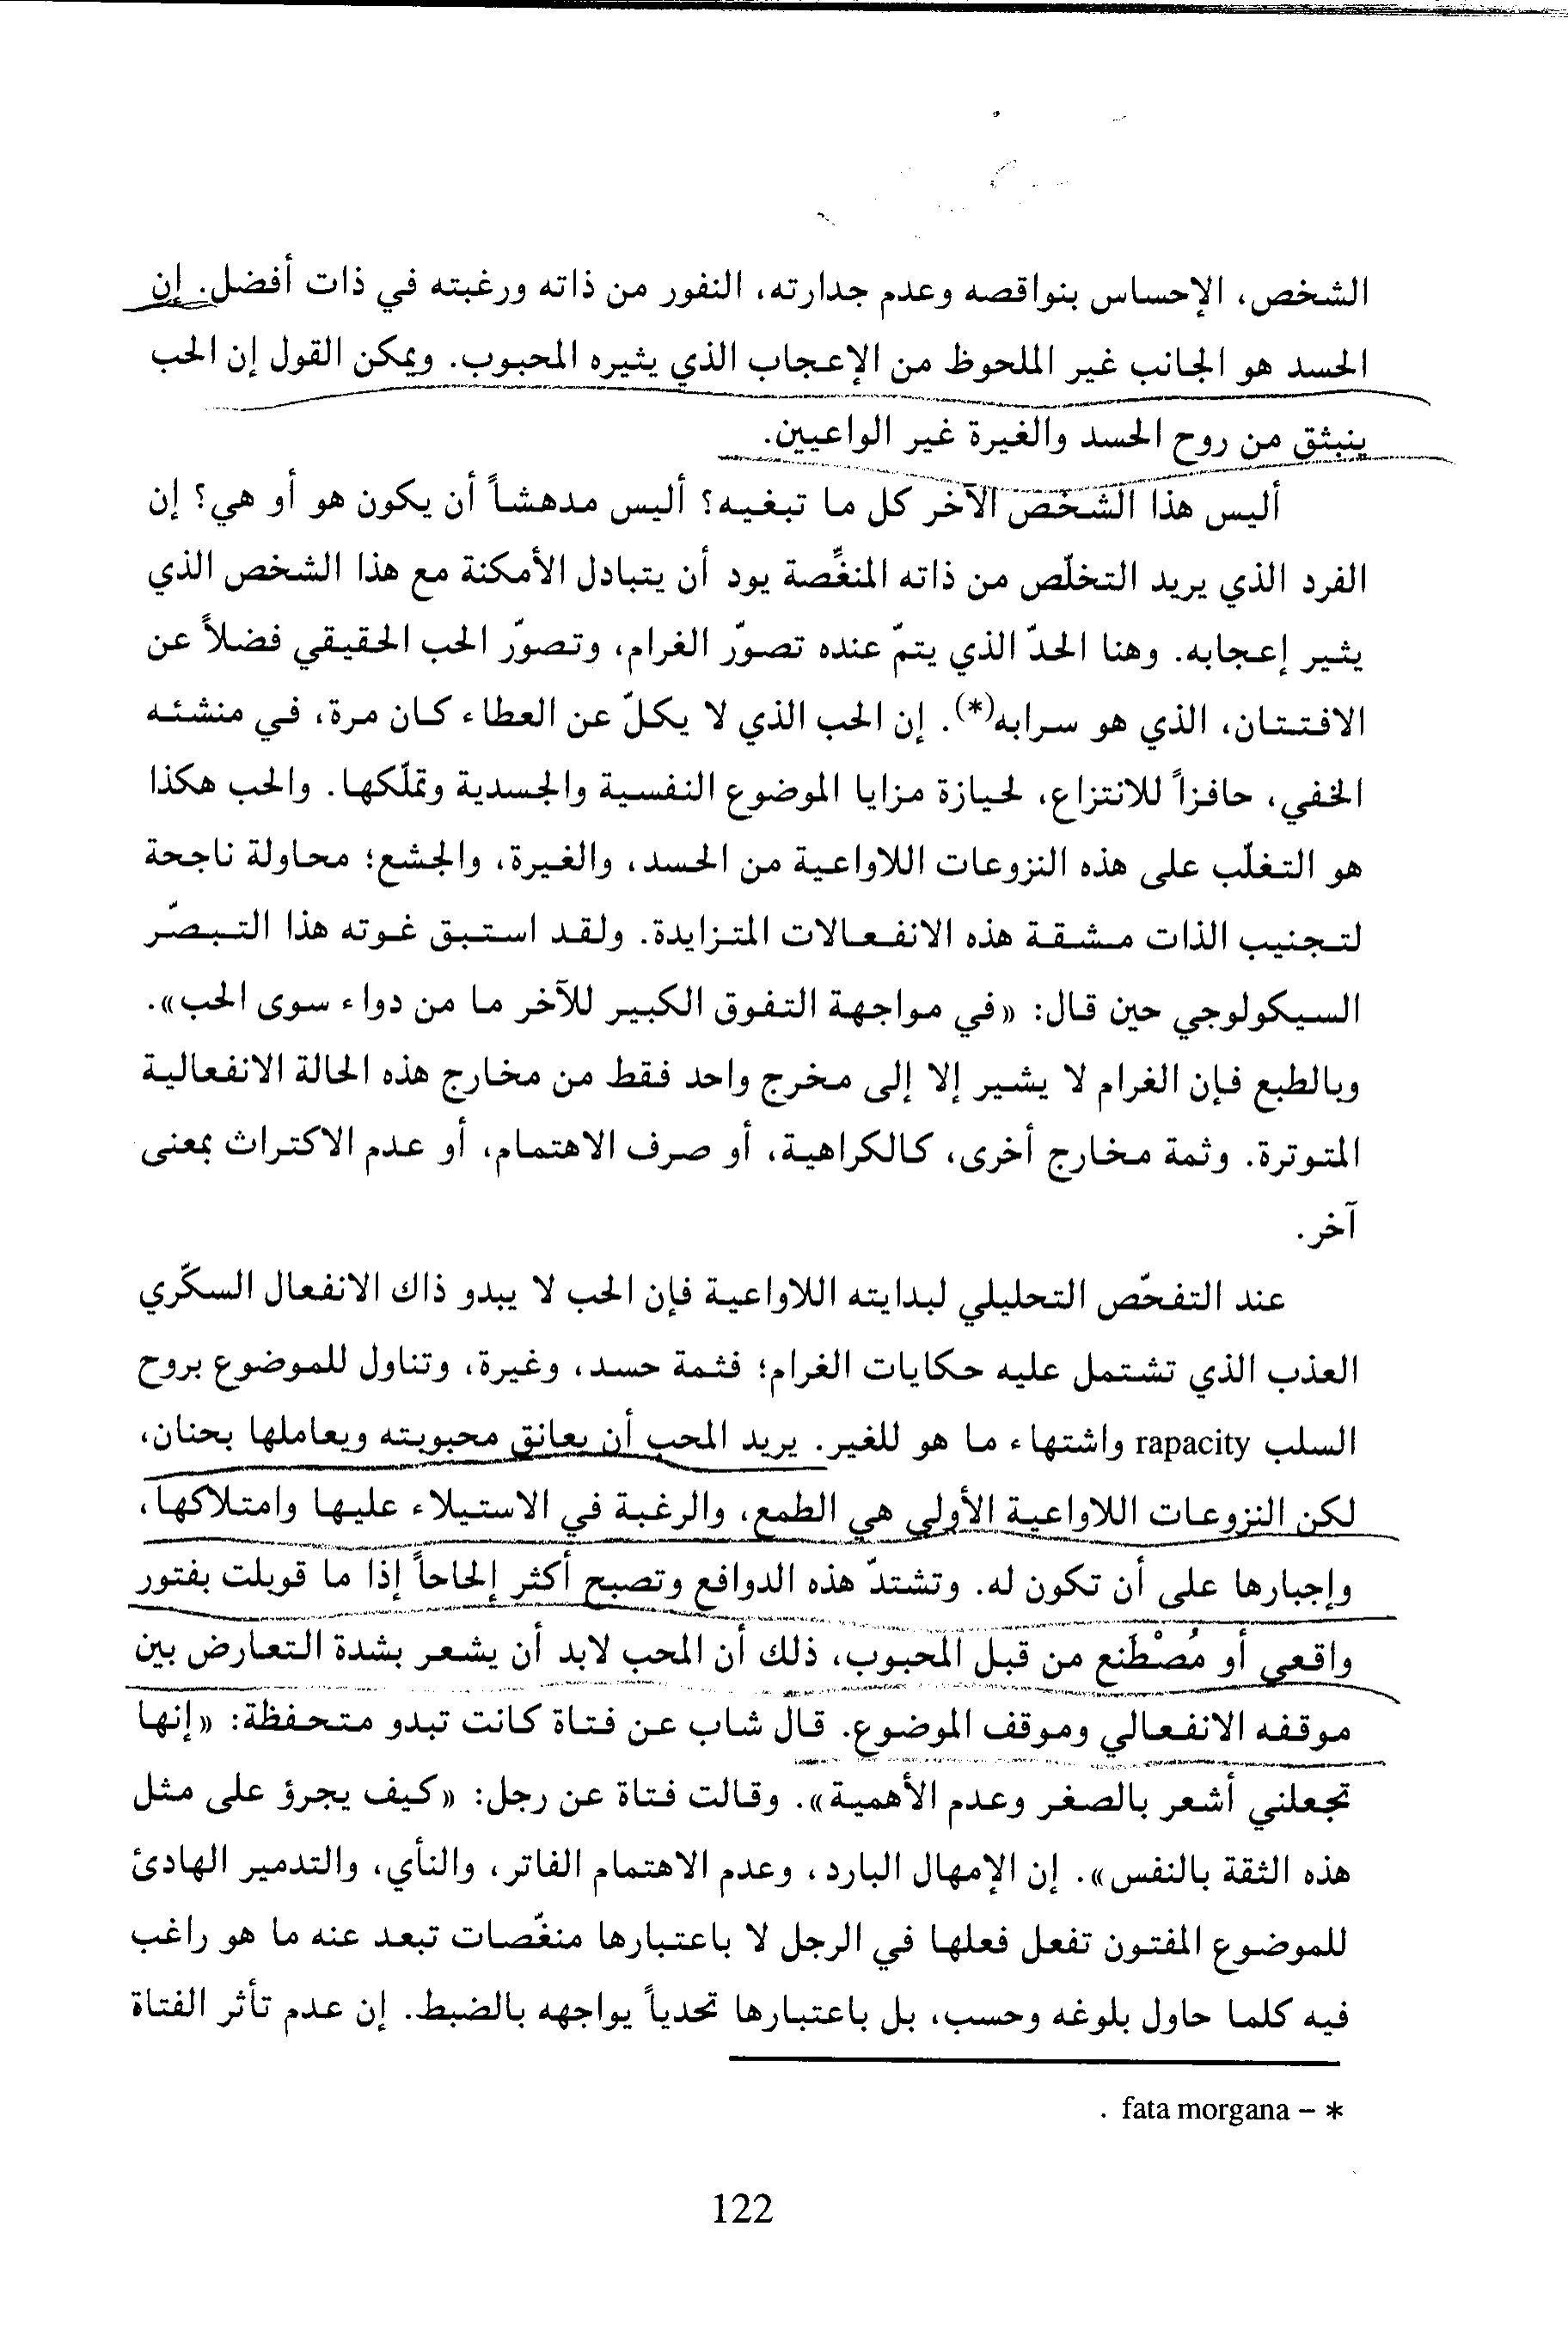 الشخص، الإحساس بنواقصه وعدم جدارته، النفور من ذاته ورغبته في ذات أفضل. إن
الحسد هو الجانب غير الملحوظ من الإعجاب الذي يثيره المحبوب. ويمكن القول إن الحب
ينبثق من روح الحسد والغيرة غير الواعيين.
أليس هذا الشخص الآخر كل ما تبغيه؟ أليس مدهشاً أن يكون هو أو هي؟ إن
الفرد الذي يريد التخلّص من ذاته المنغّصة يود أن يتبادل الأمكنة مع هذا الشخص الذي
يثير إعجابه. وهنا الحدّ الذي يتمّ عنده تصوّر الغرام، وتصوّر الحب الحقيقي فضلاً عن
الافتتان، الذي هو سرابه(*). إن الحب الذي لا يكلّ عن العطاء كان مرة، في منشئه
الخفي، حافزاً للانتزاع، لحيازة مزايا الموضوع النفسية والجسدية وتملّكها. والحب هكذا
هو التغلّب على هذه النزوعات اللاواعية من الحسد، والغيرة، والجشع؛ محاولة ناجحة
لتجنيب الذات مشقة هذه الانفعالات المتزايدة. ولقد استبق غوته هذا التبصّر
السيكولوجي حين قال: «في مواجهة التفوق الكبير للآخر ما من دواء سوى الحب».
وبالطبع فإن الغرام لا يشير إلا إلى مخرج واحد فقط من مخارج هذه الحالة الانفعالية
المتوترة. وثمة مخارج أخرى، كالكراهية، أو صرف الاهتمام، أو عدم الاكتراث بمعنى
آخر.
عند التفحّص التحليلي لبدايته اللاواعية فإن الحب لا يبدو ذاك الانفعال السكّري
العذب الذي تشتمل عليه حكايات الغرام؛ فثمة حسد، وغيرة، وتناول للموضوع بروح
السلب rapacity واشتهاء ما هو للغير. يريد المحب أن يعانق محبوبته ويعاملها بحنان،
لكن النزوعات اللاواعية الأولى هي الطمع، والرغبة في الاستيلاء عليها وامتلاكها،
وإجبارها على أن تكون له. وتشتدّ هذه الدوافع وتصبح أكثر إلحاحاً إذا ما قوبلت بفتور
واقعي أو مُصْطَنع من قبل المحبوب، ذلك أن المحب لابد أن يشعر بشدة التعارض بين
موقفه الانفعالي وموقف الموضوع. قال شاب عن فتاة كانت تبدو متحفظة: «إنها
تجعلني أشعر بالصغر وعدم الأهمية». وقالت فتاة عن رجل: «كيف يجرؤ على مثل
هذه الثقة بالنفس». إن الإمهال البارد، وعدم الاهتمام الفاتر، والنأي، والتدمير الهادئ
للموضوع المفتون تفعل فعلها في الرجل لا باعتبارها منغّصات تبعد عنه ما هو راغب
فيه كلما حاول بلوغه وحسب، بل باعتبارها تحدياً يواجهه بالضبط. إن عدم تأثر الفتاة
* – fata morgana .
122